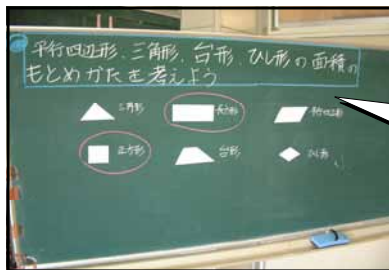 平行四辺形、三角形、台形、ひし形の面積の
もとめかたを考えよう
三角形 長方形 平行四辺形
正方形 台形 ひし形